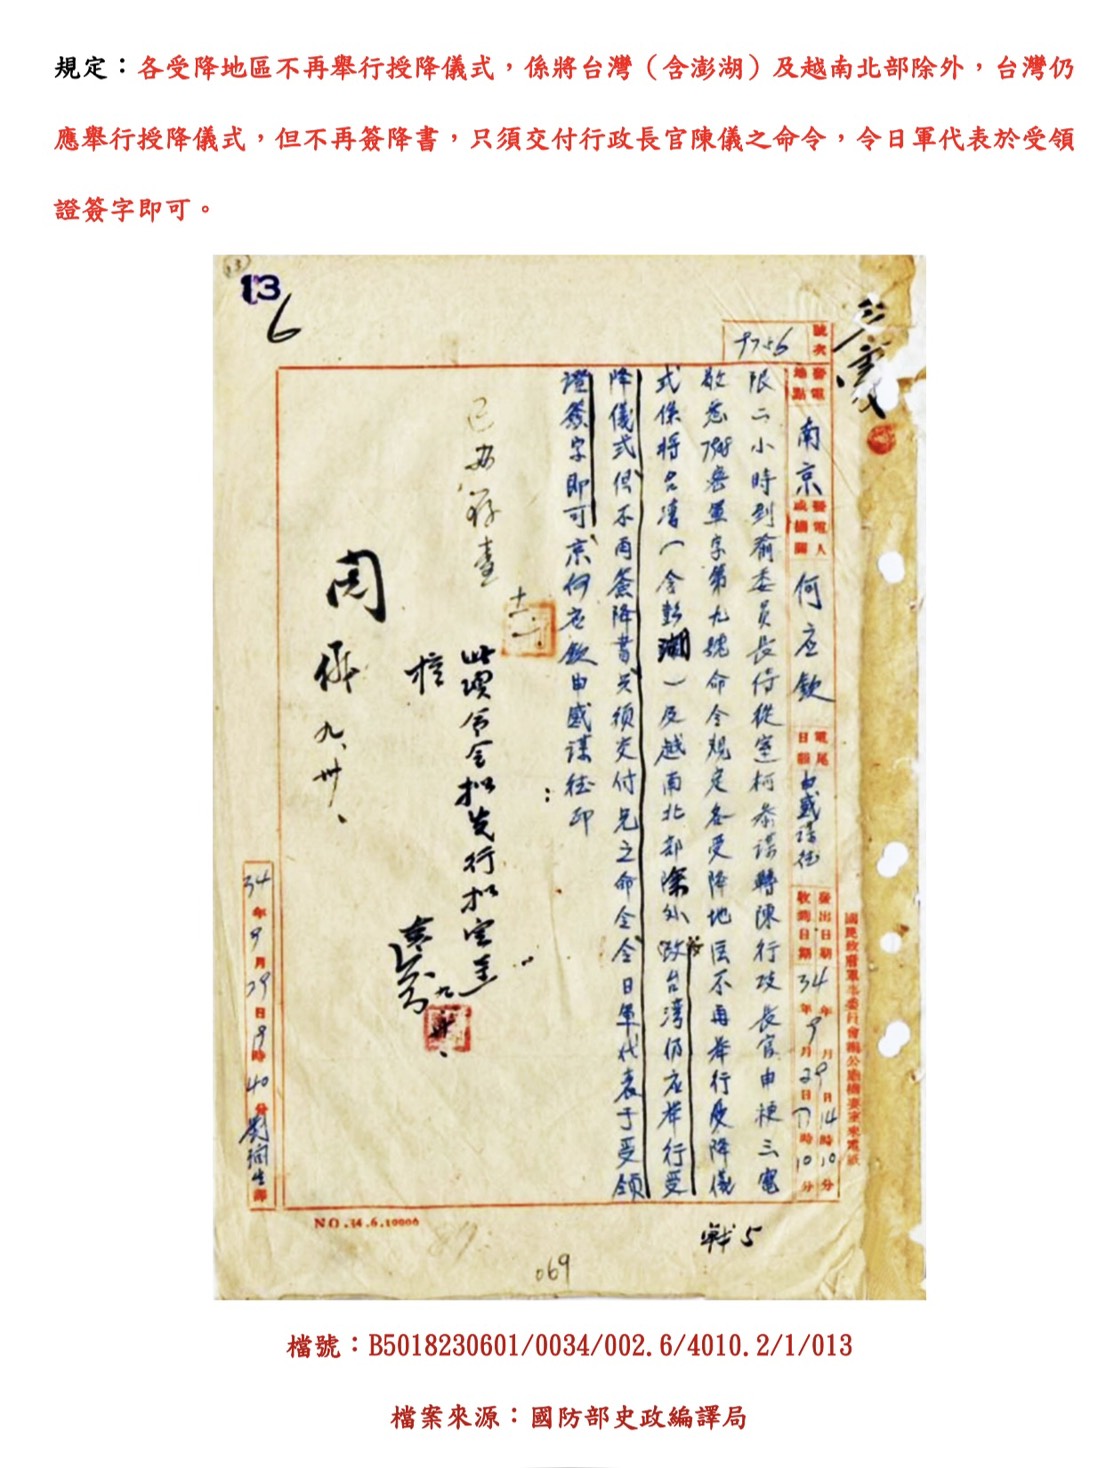 規定：各受降地區不再舉行授降儀式，係將台灣（含澎湖）及越南北部除外，台灣仍
應舉行授降儀式，但不再簽降書，只須交付行政長官陳儀之命令，令日軍代表於受領
證簽字即可。
13
6
號次
9756
發電地點
南京
發電人或機關
何应欽
電尾日韻
由感謀徒
發出日期 34年9月29日14時10分
收到日期 34年9月29日17時10分
國民政府軍事委員會辦公廳機要室來電紙
限二小時到俞委員長侍從室柯參謀轉陳行政長官申梗三電
敬悉 密軍字第九號命令規定各受降地区不再举行受降儀
式係将台湾（含澎湖）及越南北部除外 台湾仍应举行受
降儀式但不再簽降書只須交付兄之命令令日軍代表于受領
證簽字即可京何应欽由感謀徒印
已 存查
核
周 九、卅、
34年9月29日19時40分 譯
NO.34.6.10000
戰5
069
檔號：B5018230601/0034/002.6/4010.2/1/013
檔案來源：國防部史政編譯局